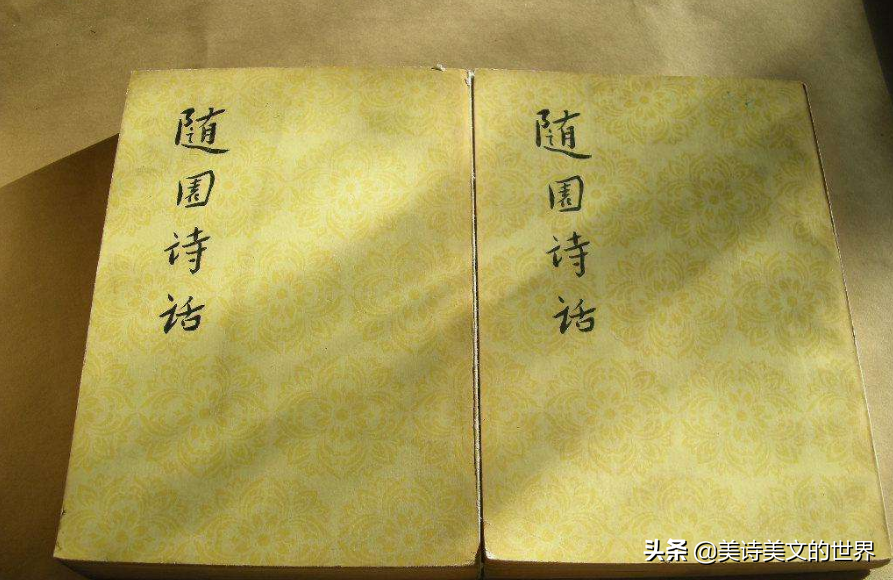 随园诗话
随园诗话
头条 @美诗美文的世界